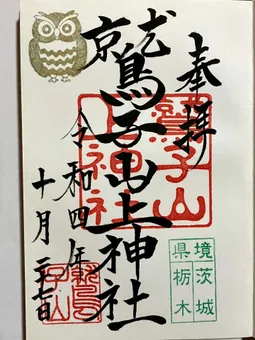 奉拝
鷲子山上神社
令和四年
十月
鷲子山上神社
鷲子山
茨城境
栃木県